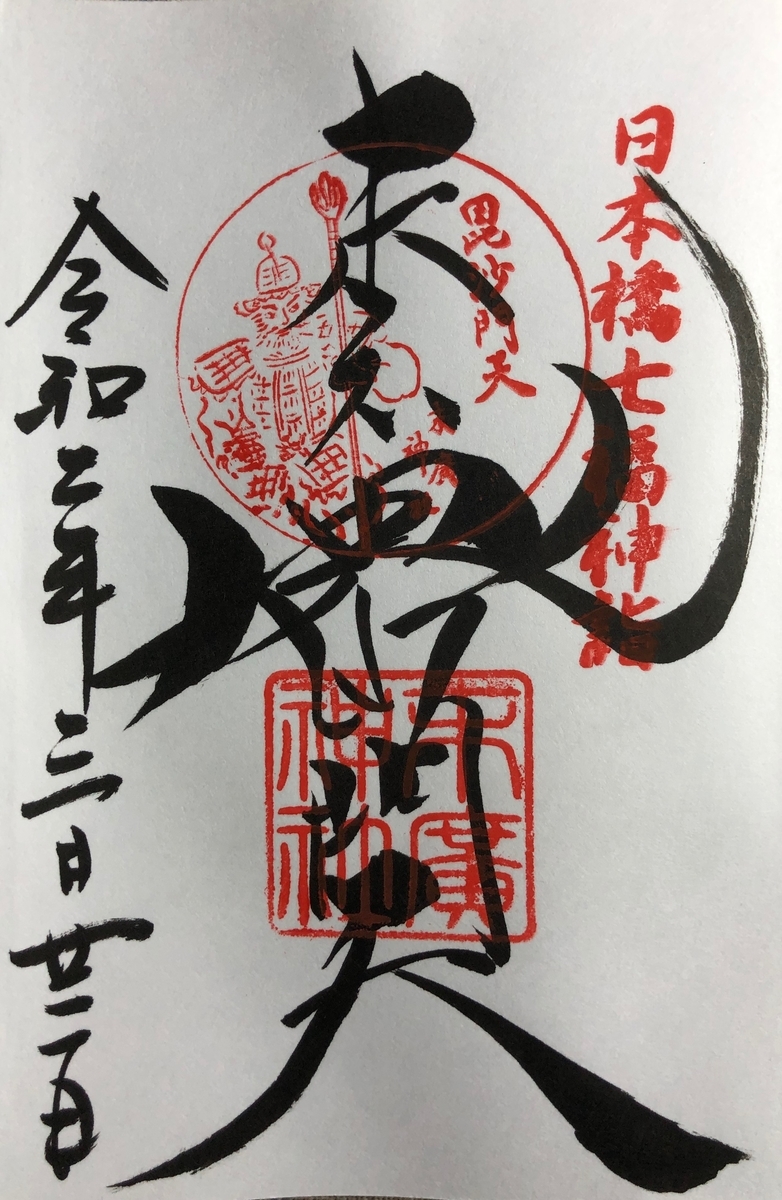 日本橋七福神詣
毘沙門天
末廣神社
末
毘沙門天
末廣
神社
令和二年三月